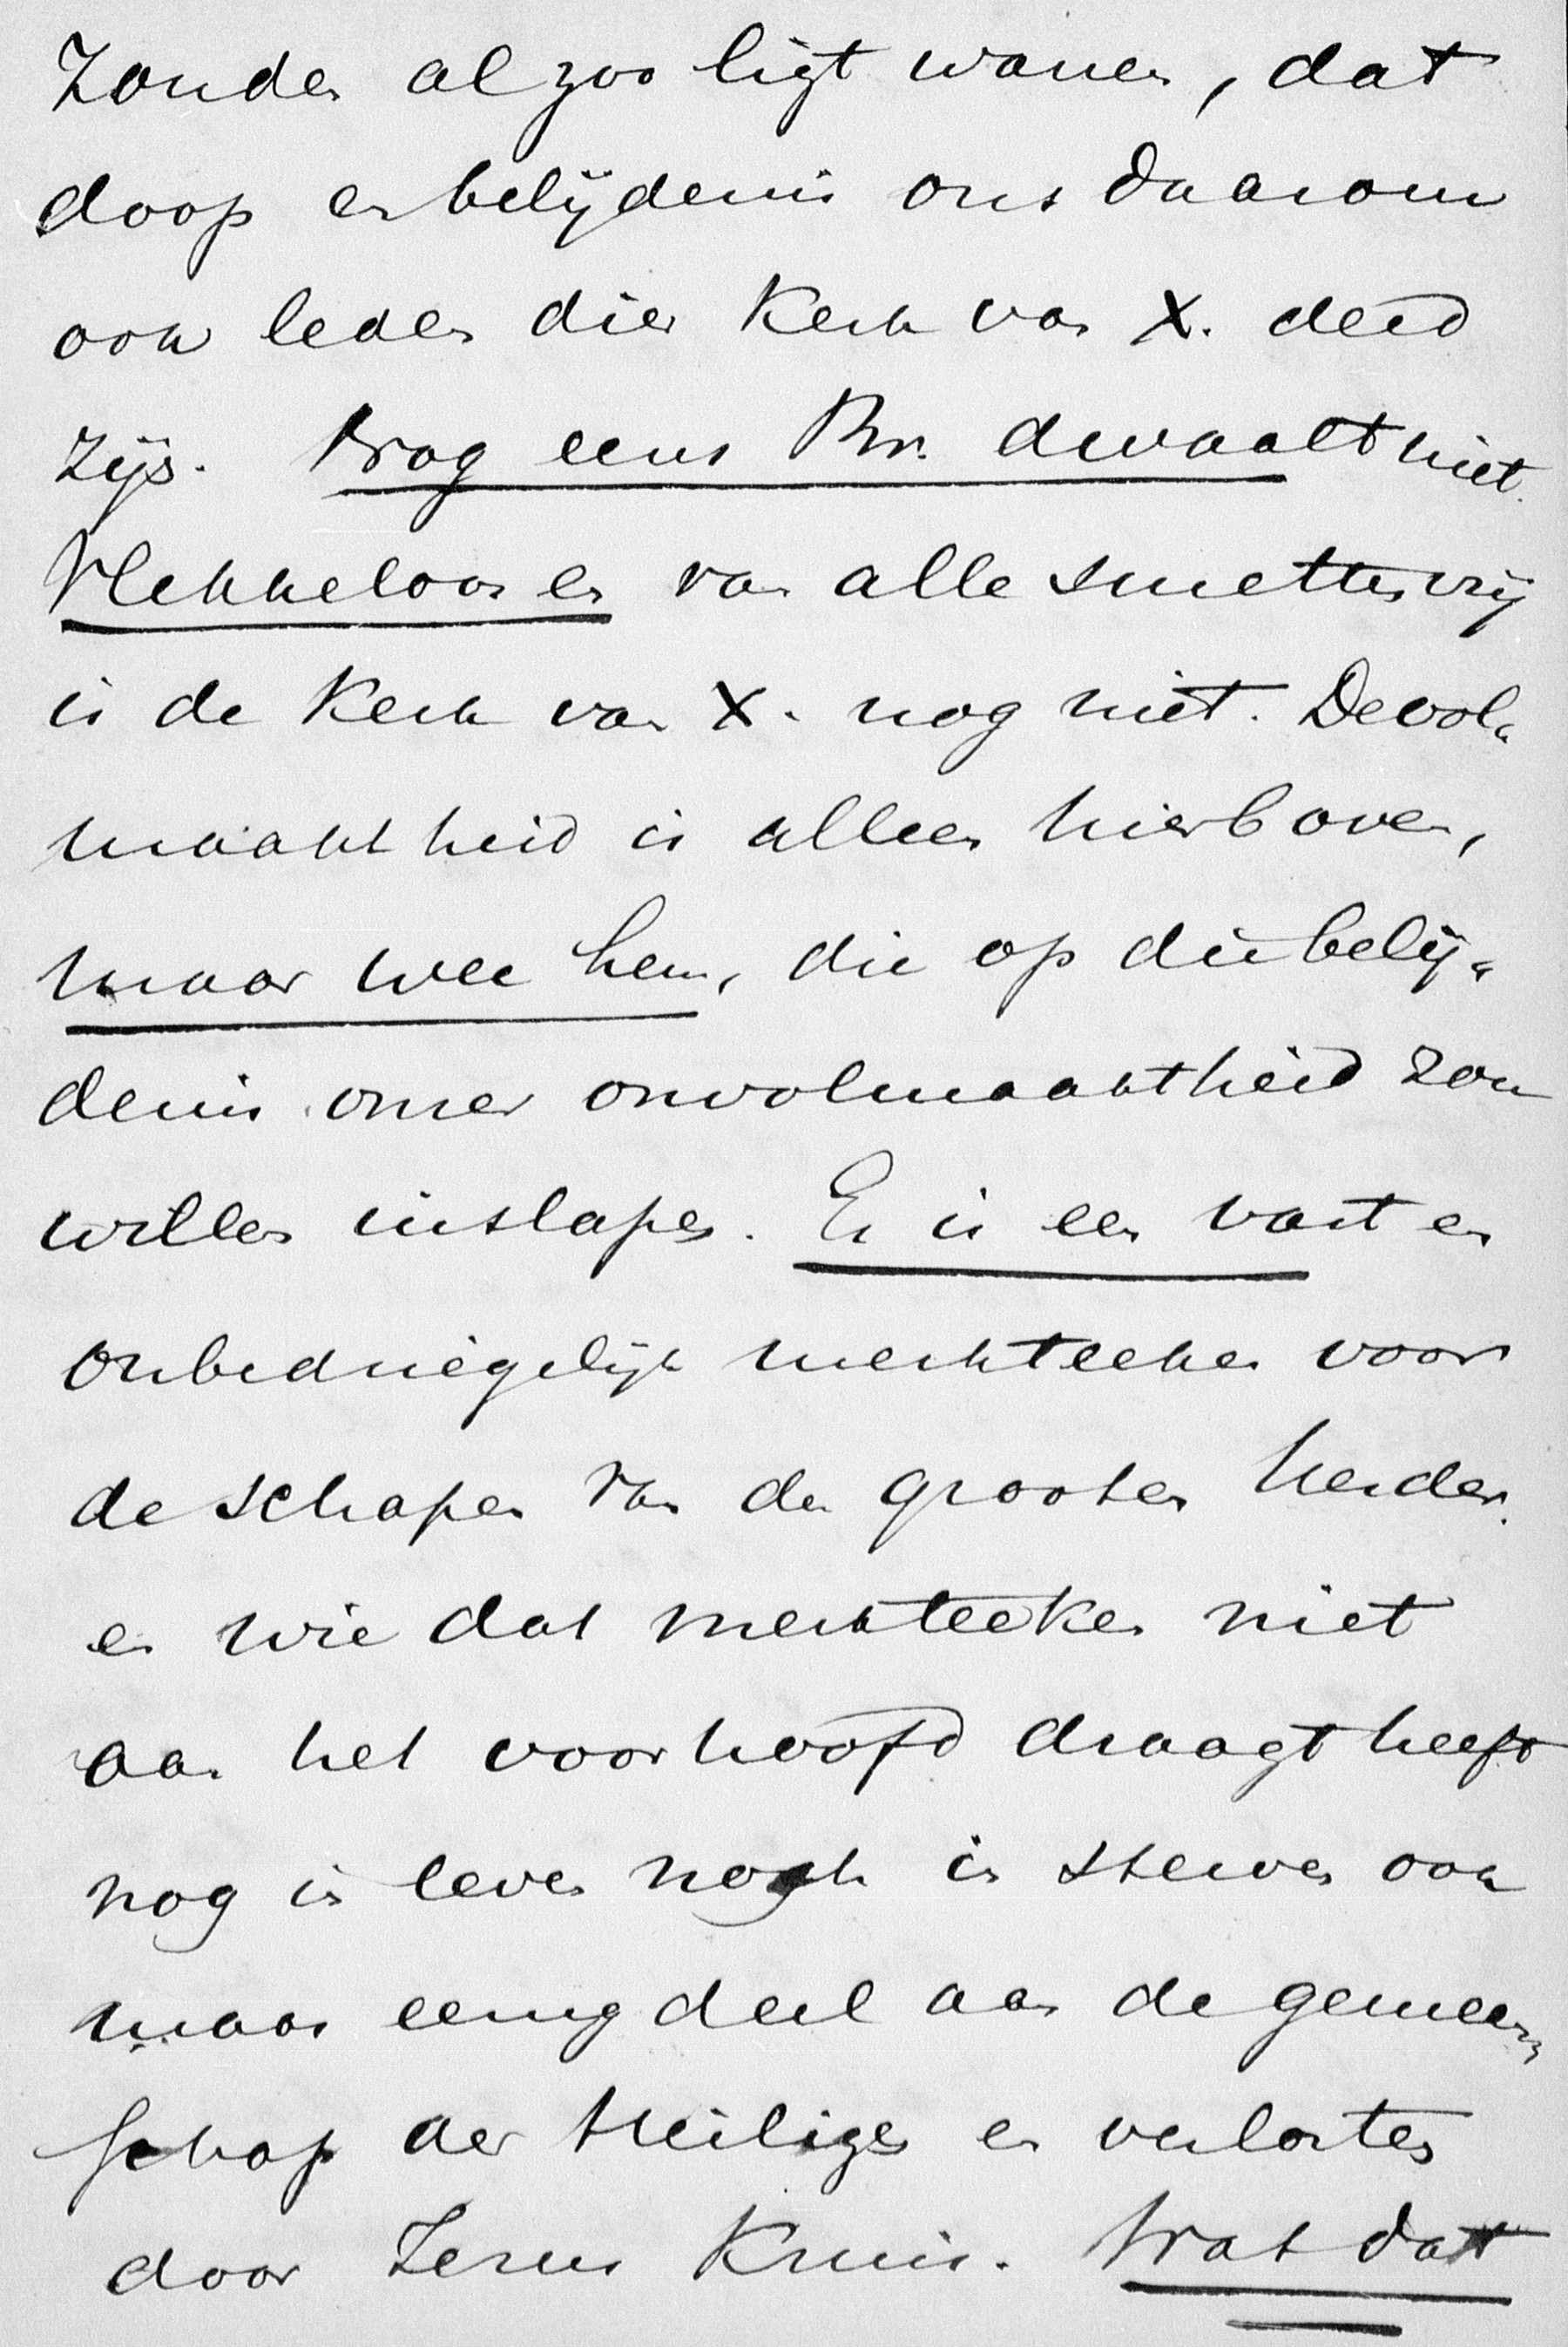 Zouden al zoo ligt wanen, dat
doop en belijdenis ons daarom
ook leden dier Kerk van X. deed
zijn. Nog eens Br. dwaalt niet.
Vlekkeloos en van alle smetten vrij
is de Kerk van X. nog niet. De vol„
maaktheid is alleen hierboven,
maar wee hem, die op die belij„
denis onzer onvolmaaktheid zou
willen inslapen. Er is een vast en
onbedriegelijk merkteeken voor
de schapen van den grooten herder.
en wie dat merkteeken niet
aan het voorhoofd draagt heeft
nog in leven noch in sterven ook
maar eenig deel aan de gemeen„
schap der Heiligen en verlosten
door Jezus Kruis. Wat dat